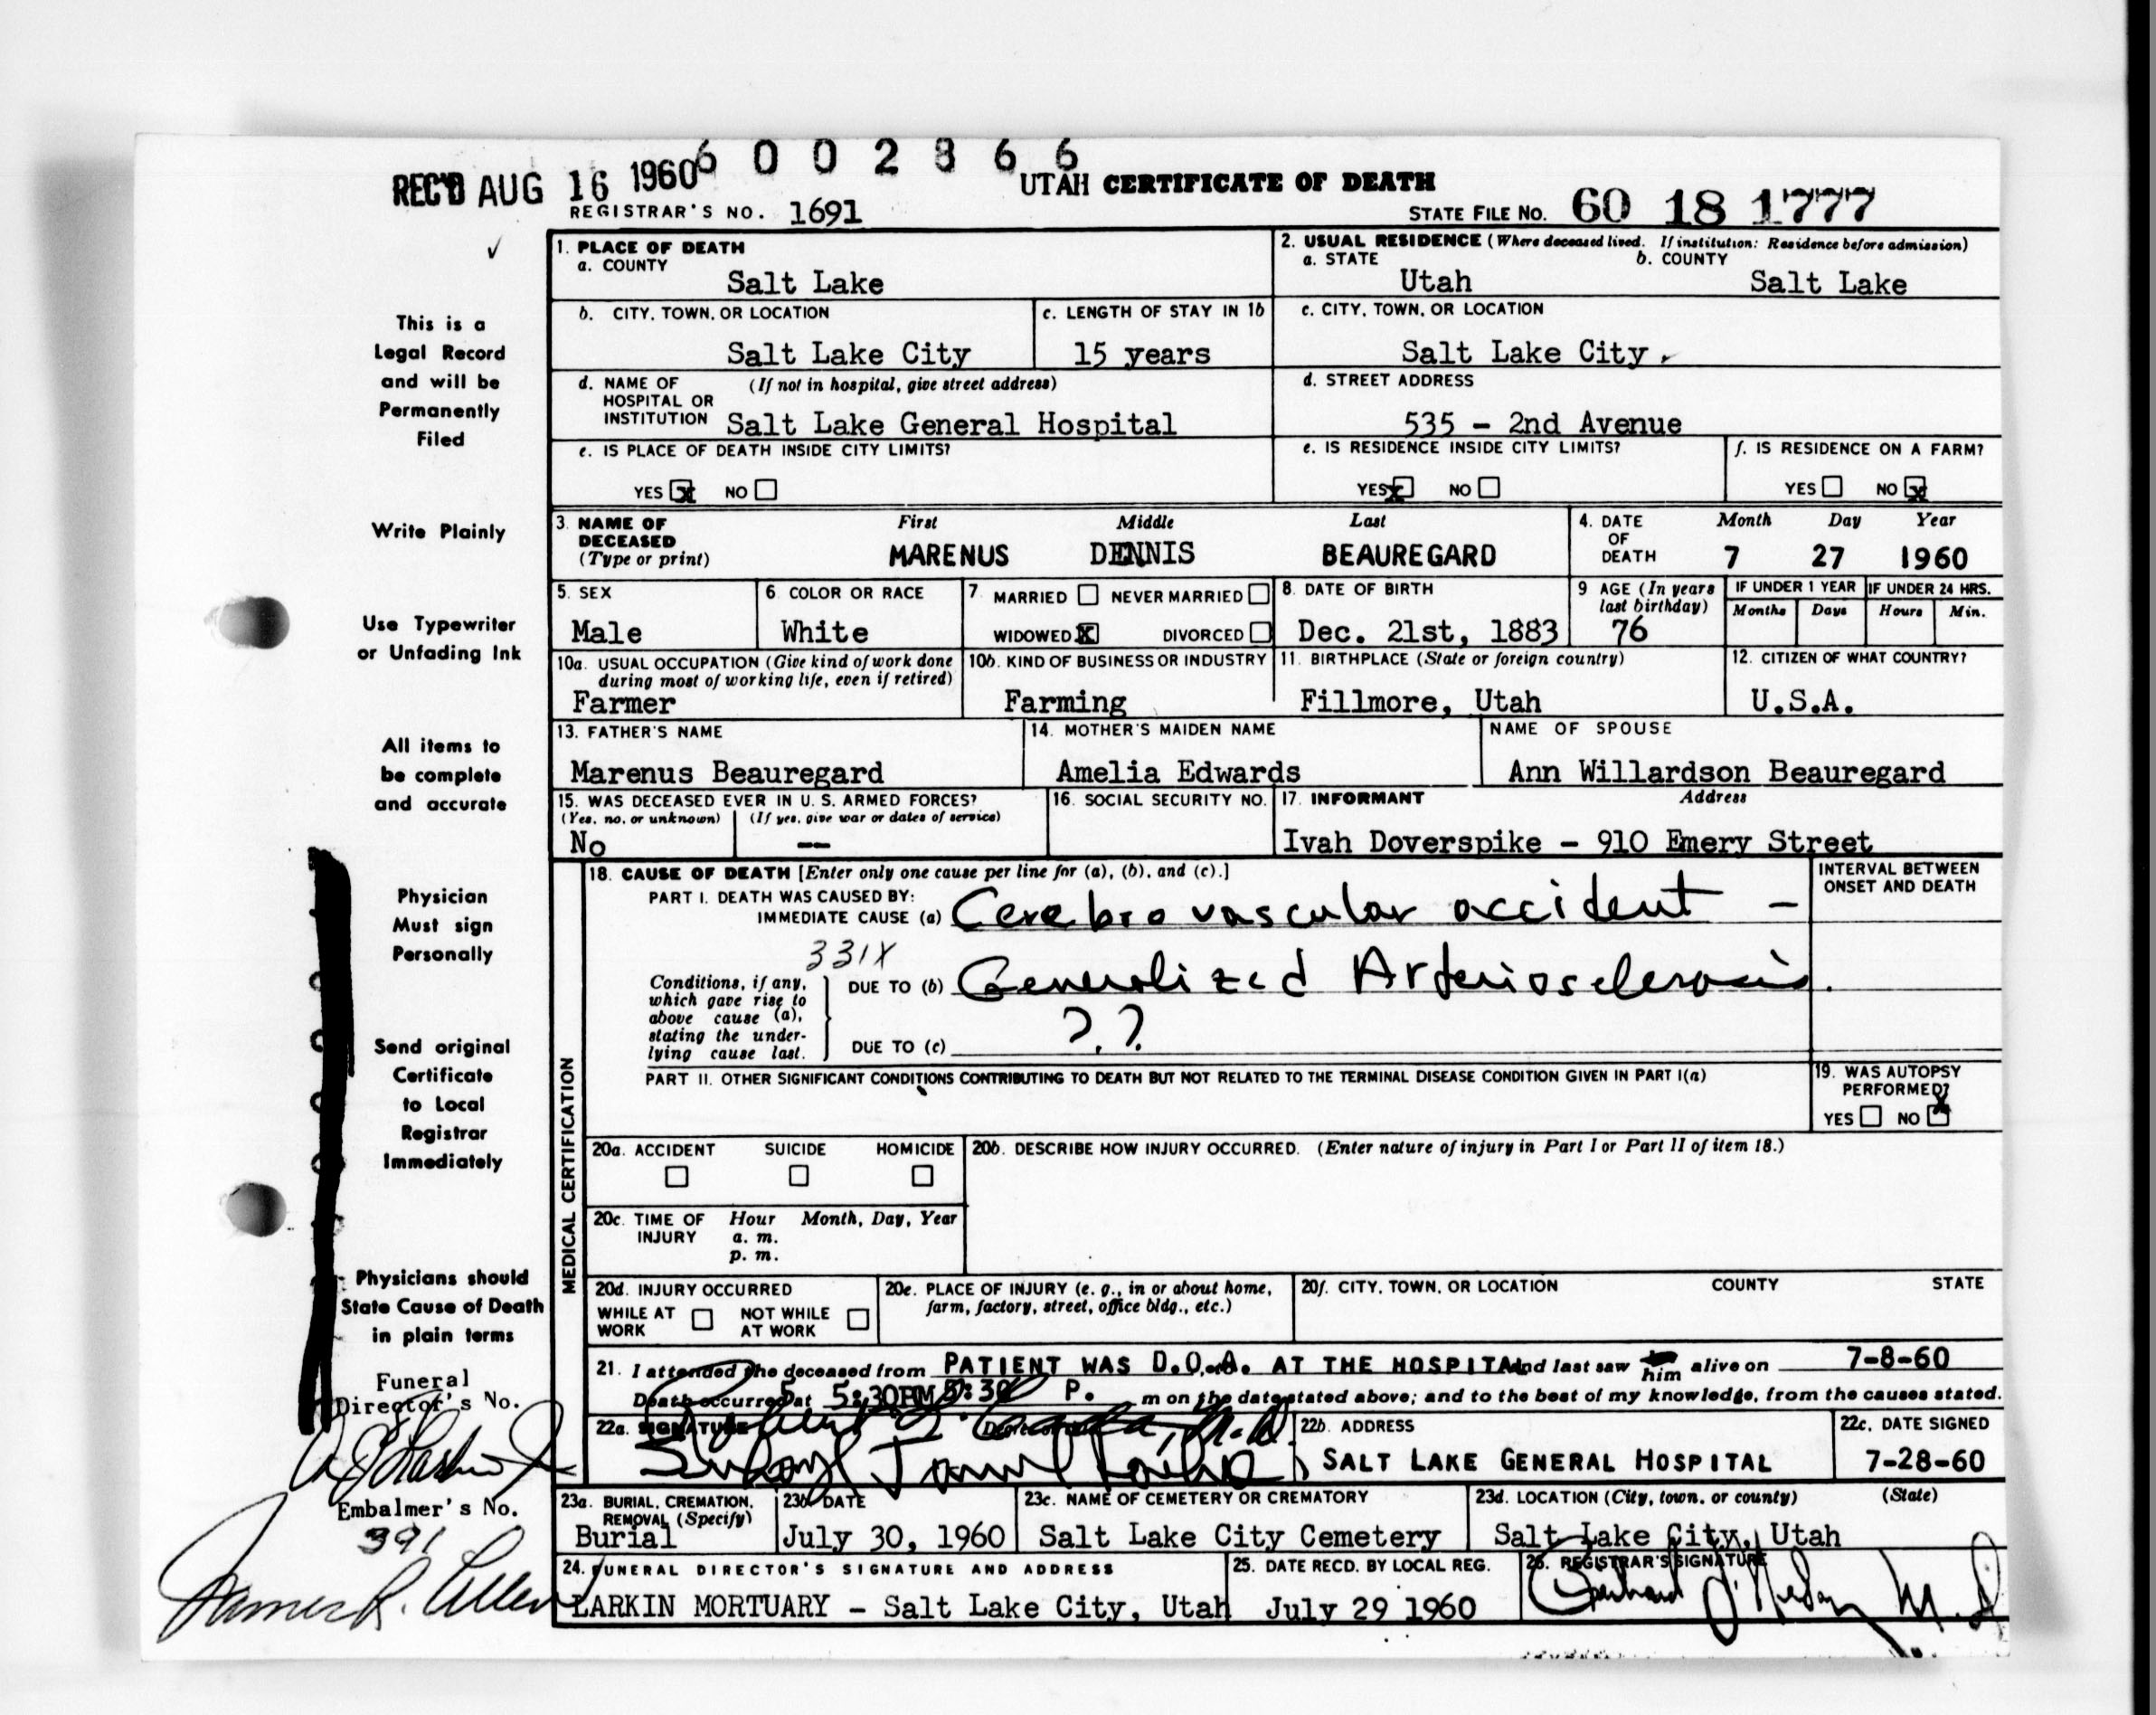 6002866
REC'D AUG 16 1960
UTAH CERTIFICATE OF DEATH
REGISTRAR'S NO. 1691
STATE FILE NO. 60 18 1777
This is a
Legal Record
and will be
Permanently
Filed
Write Plainly
Use Typewriter
or Unfading Ink
All items to
be complete
and accurate
Physician
Must sign
Personally
Send original
Certificate
to Local
Registrar
Immediately
Physicians should
State Cause of Death
in plain terms
Funeral
Director's No.
Embalmer's No.
391
James R. Allen
1. PLACE OF DEATH
a. COUNTY
Salt Lake
2. USUAL RESIDENCE (Where deceased lived. If institution: Residence before admission)
a. STATE b. COUNTY
Utah Salt Lake
b. CITY, TOWN, OR LOCATION
Salt Lake City
c. LENGTH OF STAY IN 1b
15 years
c. CITY, TOWN, OR LOCATION
Salt Lake City
d. NAME OF (If not in hospital, give street address)
HOSPITAL OR
INSTITUTION Salt Lake General Hospital
d. STREET ADDRESS
535 - 2nd Avenue
e. IS PLACE OF DEATH INSIDE CITY LIMITS?
YES X NO
e. IS RESIDENCE INSIDE CITY LIMITS?
YES X NO
f. IS RESIDENCE ON A FARM?
YES NO X
3. NAME OF DECEASED (Type or print)
First Middle Last
MARENUS DENNIS BEAUREGARD
4. DATE OF DEATH
Month Day Year
7 27 1960
5. SEX
Male
6. COLOR OR RACE
White
7. MARRIED NEVER MARRIED
WIDOWED X DIVORCED
8. DATE OF BIRTH
Dec. 21st, 1883
9 AGE (In years last birthday)
76
IF UNDER 1 YEAR
Months Days
IF UNDER 24 HRS.
Hours Min.
10a. USUAL OCCUPATION (Give kind of work done
during most of working life, even if retired)
Farmer
10b. KIND OF BUSINESS OR INDUSTRY
Farming
11. BIRTHPLACE (State or foreign country)
Fillmore, Utah
12. CITIZEN OF WHAT COUNTRY?
U.S.A.
13. FATHER'S NAME
Marenus Beauregard
14. MOTHER'S MAIDEN NAME
Amelia Edwards
NAME OF SPOUSE
Ann Willardson Beauregard
15. WAS DECEASED EVER IN U. S. ARMED FORCES?
(Yes, no, or unknown) (If yes, give war or dates of service)
No --
16. SOCIAL SECURITY NO.
17. INFORMANT Address
Ivah Doverspike - 910 Emery Street
MEDICAL CERTIFICATION
18. CAUSE OF DEATH [Enter only one cause per line for (a), (b), and (c).]
INTERVAL BETWEEN
ONSET AND DEATH
PART I. DEATH WAS CAUSED BY:
IMMEDIATE CAUSE (a) Cerebro vascular accident -
331X
Conditions, if any,
which gave rise to
above cause (a),
stating the under-
lying cause last.
DUE TO (b) Generalized Arteriosclerosis.
DUE TO (c) ??
PART II. OTHER SIGNIFICANT CONDITIONS CONTRIBUTING TO DEATH BUT NOT RELATED TO THE TERMINAL DISEASE CONDITION GIVEN IN PART I(a)
19. WAS AUTOPSY
PERFORMED?
YES NO X
20a. ACCIDENT SUICIDE HOMICIDE
20b. DESCRIBE HOW INJURY OCCURRED. (Enter nature of injury in Part I or Part II of item 18.)
20c. TIME OF INJURY
Hour Month, Day, Year
a. m.
p. m.
20d. INJURY OCCURRED
WHILE AT WORK NOT WHILE AT WORK
20e. PLACE OF INJURY (e. g., in or about home,
farm, factory, street, office bldg., etc.)
20f. CITY, TOWN, OR LOCATION COUNTY STATE
21. I attended the deceased from PATIENT WAS D.O.A. AT THE HOSPITAL and last saw him alive on 7-8-60
Death occurred at 5:30PM 5:30 P. m on the date stated above; and to the best of my knowledge, from the causes stated.
22a. SIGNATURE
22b. ADDRESS
SALT LAKE GENERAL HOSPITAL
22c. DATE SIGNED
7-28-60
23a. BURIAL, CREMATION,
REMOVAL (Specify)
Burial
23b. DATE
July 30, 1960
23c. NAME OF CEMETERY OR CREMATORY
Salt Lake City Cemetery
23d. LOCATION (City, town, or county) (State)
Salt Lake City, Utah
24. FUNERAL DIRECTOR'S SIGNATURE AND ADDRESS
LARKIN MORTUARY - Salt Lake City, Utah
25. DATE RECD. BY LOCAL REG.
July 29 1960
26. REGISTRAR'S SIGNATURE